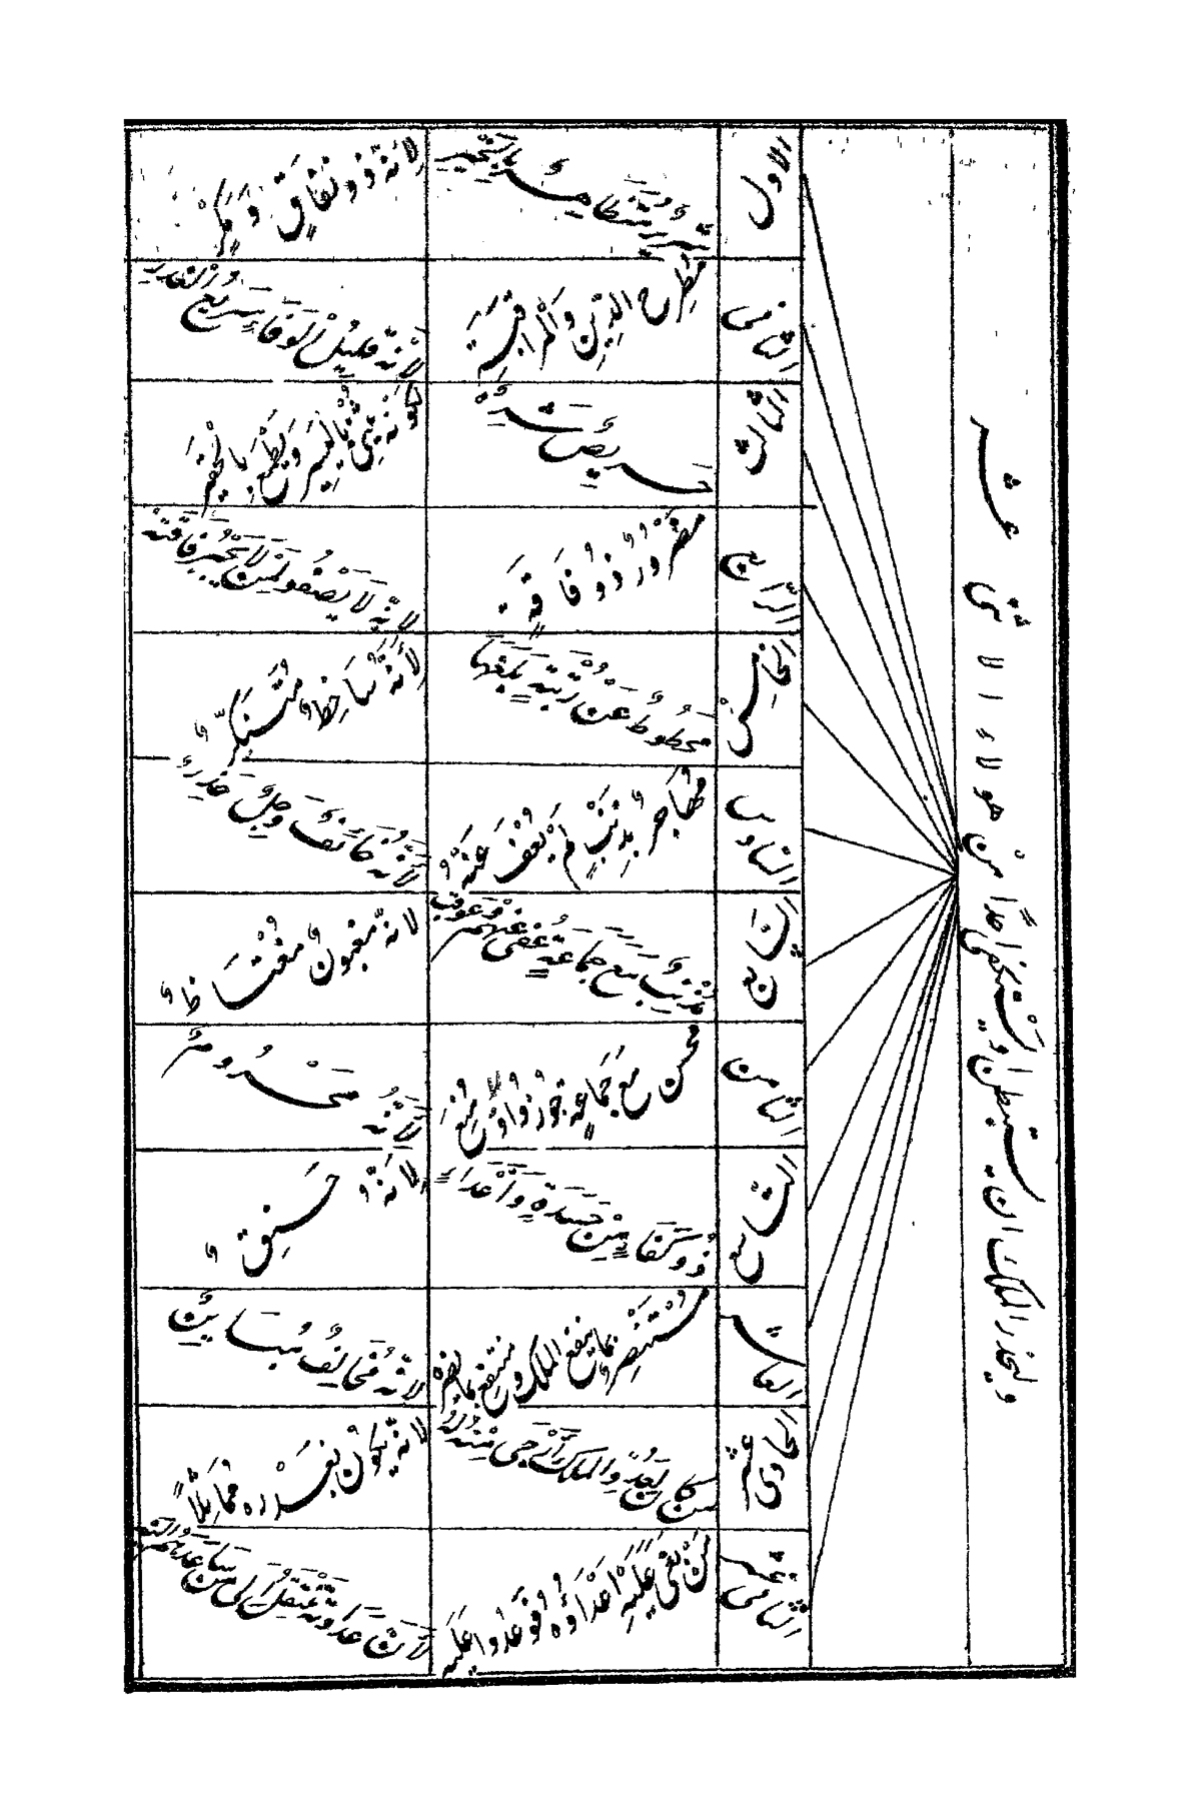 وليحذر الملك ان يستبطن او يستكفى احدًا من هولاء الاثنى عشر
الاول
شرير متظاهر بالخير
لانه ذو نفاق ومكر
الثانى
مطرح الدين والمراقبة
لانه قليل الوفاء سريع الغدر
الثالث
حريص شره
لانه يبيع باليسير ويطمع بالحقير
الرابع
مضرور ذو فاقة
لانه لا يصفو لمن لا يجبر فاقته
الخامس
محطوط عن رتبة بلغها
لانه ساخط متنكر
السادس
مهاجر بذنب لم يعف عنه
لانه خائف وجل حذر
السابع
مذنب مع جماعة عفى عنهم وعوقب
لانه مغبون مغتاظ
الثامن
محسن مع جماعة جوزوا ومنع
لانه محروم
التاسع
ذو كفاءة من حسدة واعداء
لانه حنق
العاشر
مستضر بما ينفع الملك ومنتفع بما يضره
لانه مخالف مباين
الحادى عشر
من كان لعدو الملك ارجى منه له
لانه يكون بغدره مماثلًا
الثانى عشر
من بغى عليه اعداؤه فوعدوا عليه
لان عداوته تنتقل الى من ساعدهم